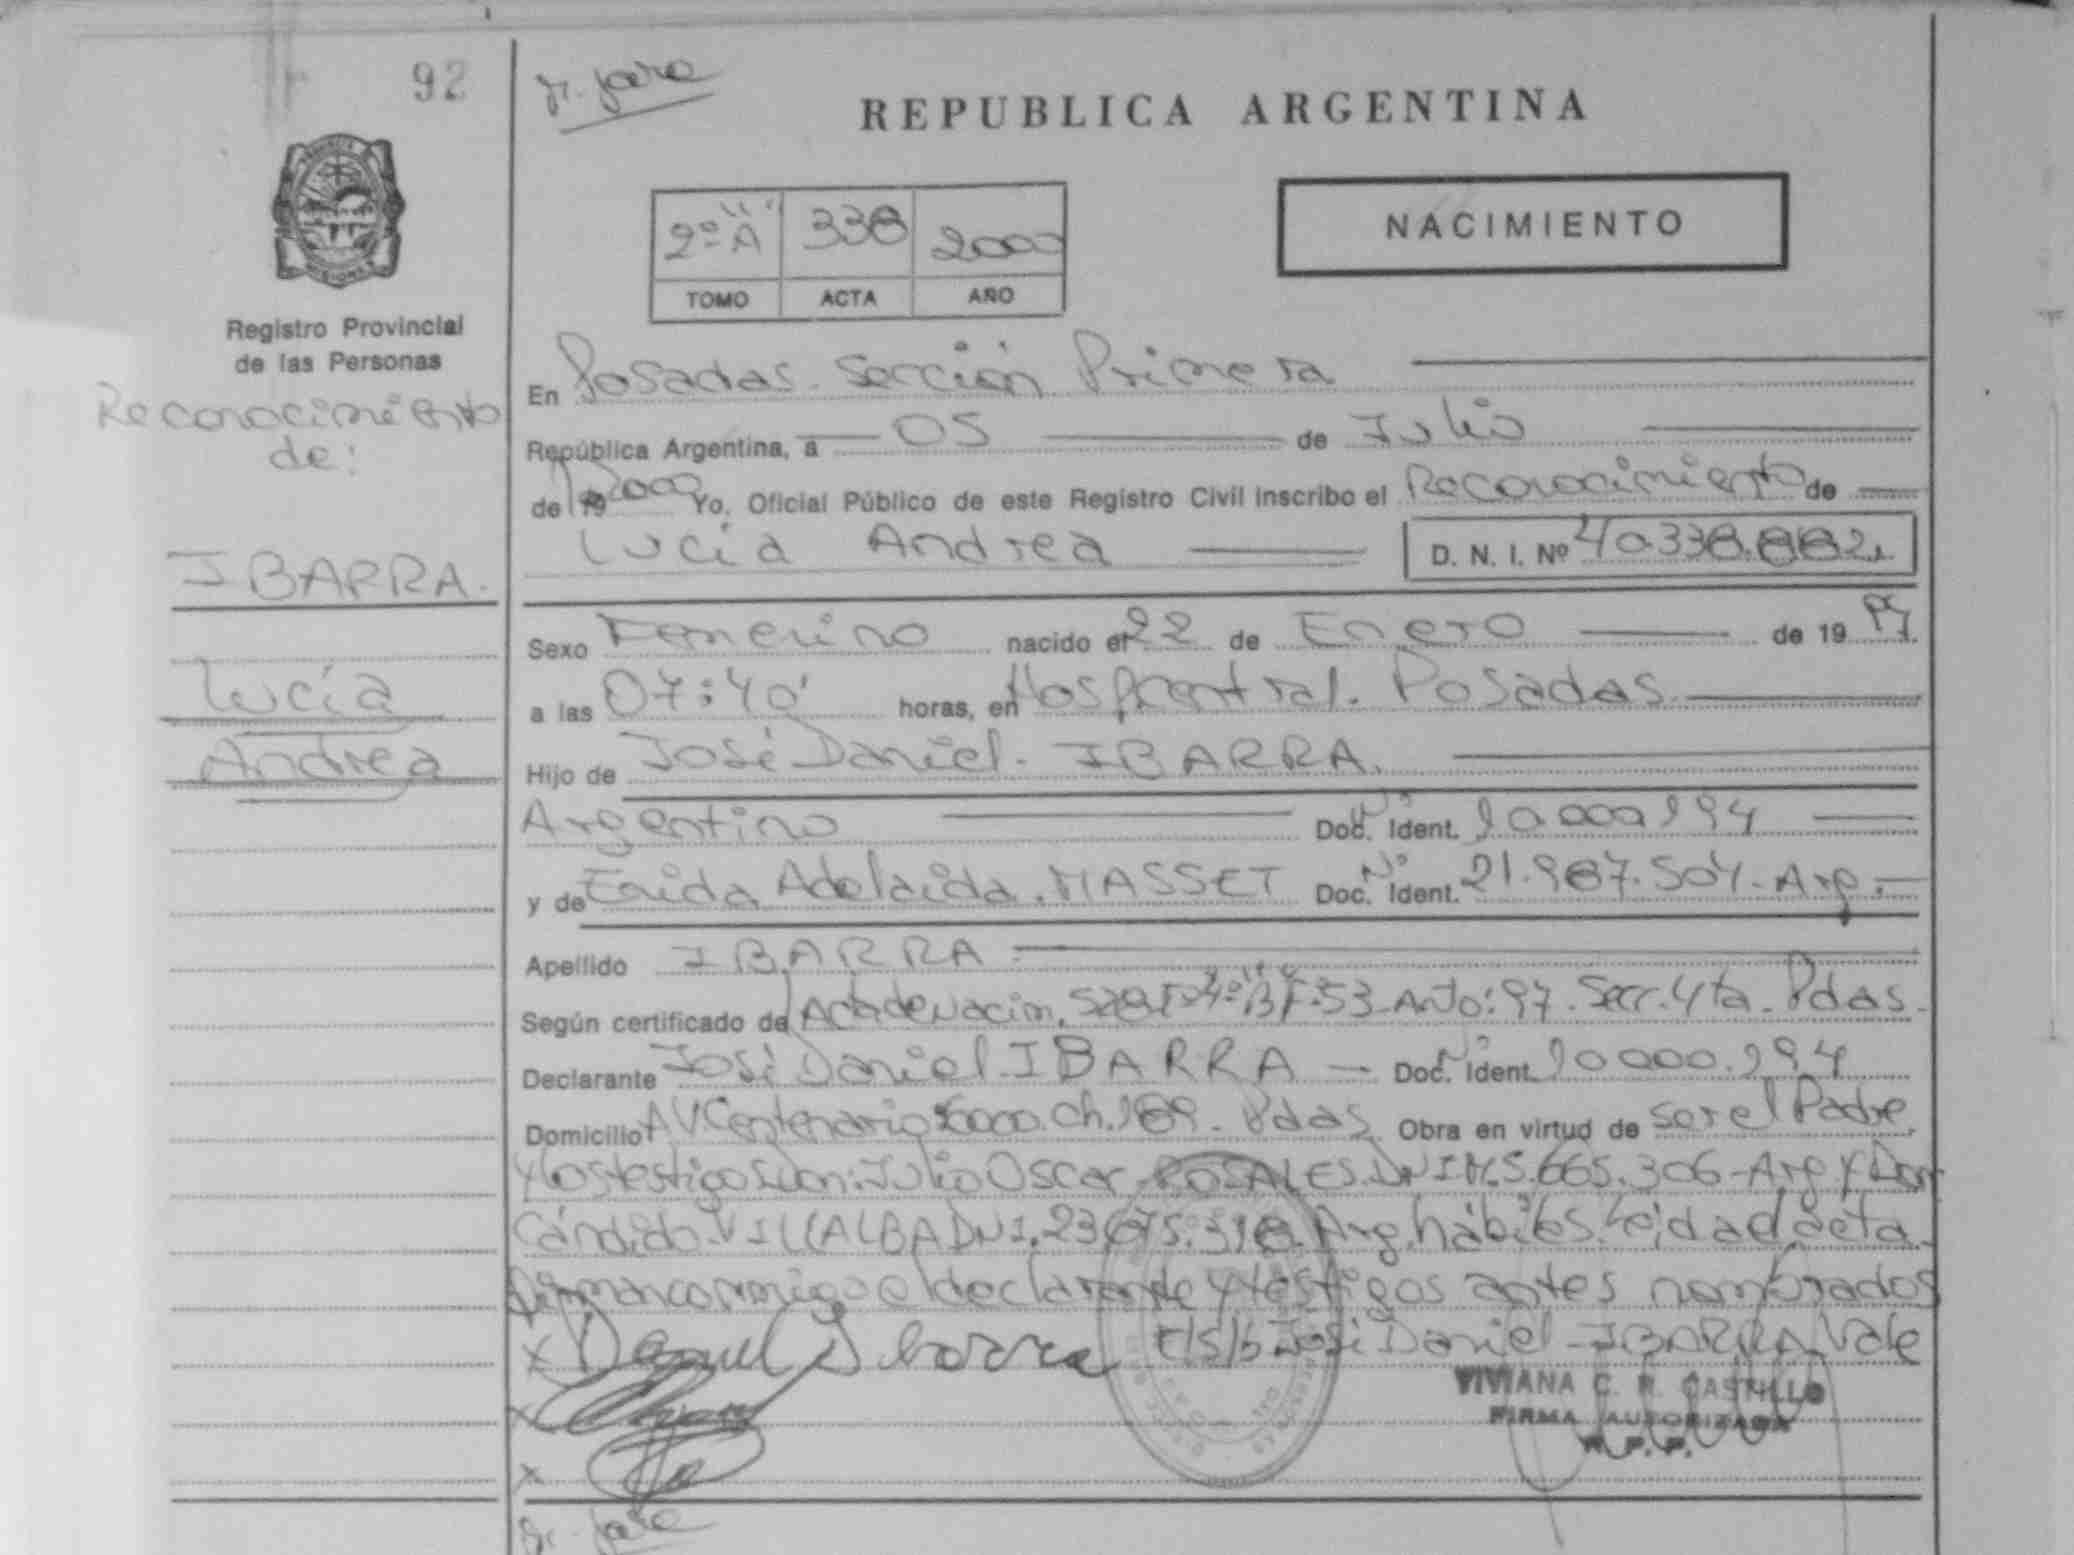 92
REPUBLICA ARGENTINA
2º "A" 338 2000
TOMO ACTA AÑO
NACIMIENTO
Registro Provincial
de las Personas
Reconocimiento
de:
IBARRA.
Lucía
Andrea
En Posadas. Sección Primera
República Argentina, a 05 de Julio
de 19 2000 Yo, Oficial Público de este Registro Civil inscribo el Reconocimiento de
Lucía Andrea D. N. I. Nº 40.338.882.
Sexo Femenino nacido el 22 de Enero de 19 97.
a las 07:40' horas, en Hosp Central. Posadas
Hijo de José Daniel. IBARRA.
Argentino Doc. Ident. Nº 10000194
y de Enida Adelaida. MASSET Doc. Ident. Nº 21.967.504-Arg.
Apellido IBARRA.
Según certificado de Acta de Nacim. 528 T-4º"B" F:53-Año:97. Secc. 4ta. Pdas.
Declarante José Daniel IBARRA Doc. Ident. Nº 10000.194
Domicilio AV Centenario 6000. Ch. 189. Pdas Obra en virtud de ser el Padre.
y los testigos Don: Julio Oscar ROSALES. DNI M.5.665.306-Arg. y Don
Cándido VILLALBA DNI. 23.675.318. Arg. hábiles. Leída el acta
firman conmigo el declarante y testigos antes nombrados
x Daniel Ibarra E/S/b José Daniel - IBARRA. Vale
x VIVIANA C. R. CASTILLO
FIRMA AUTORIZADA
R. P. P.
x